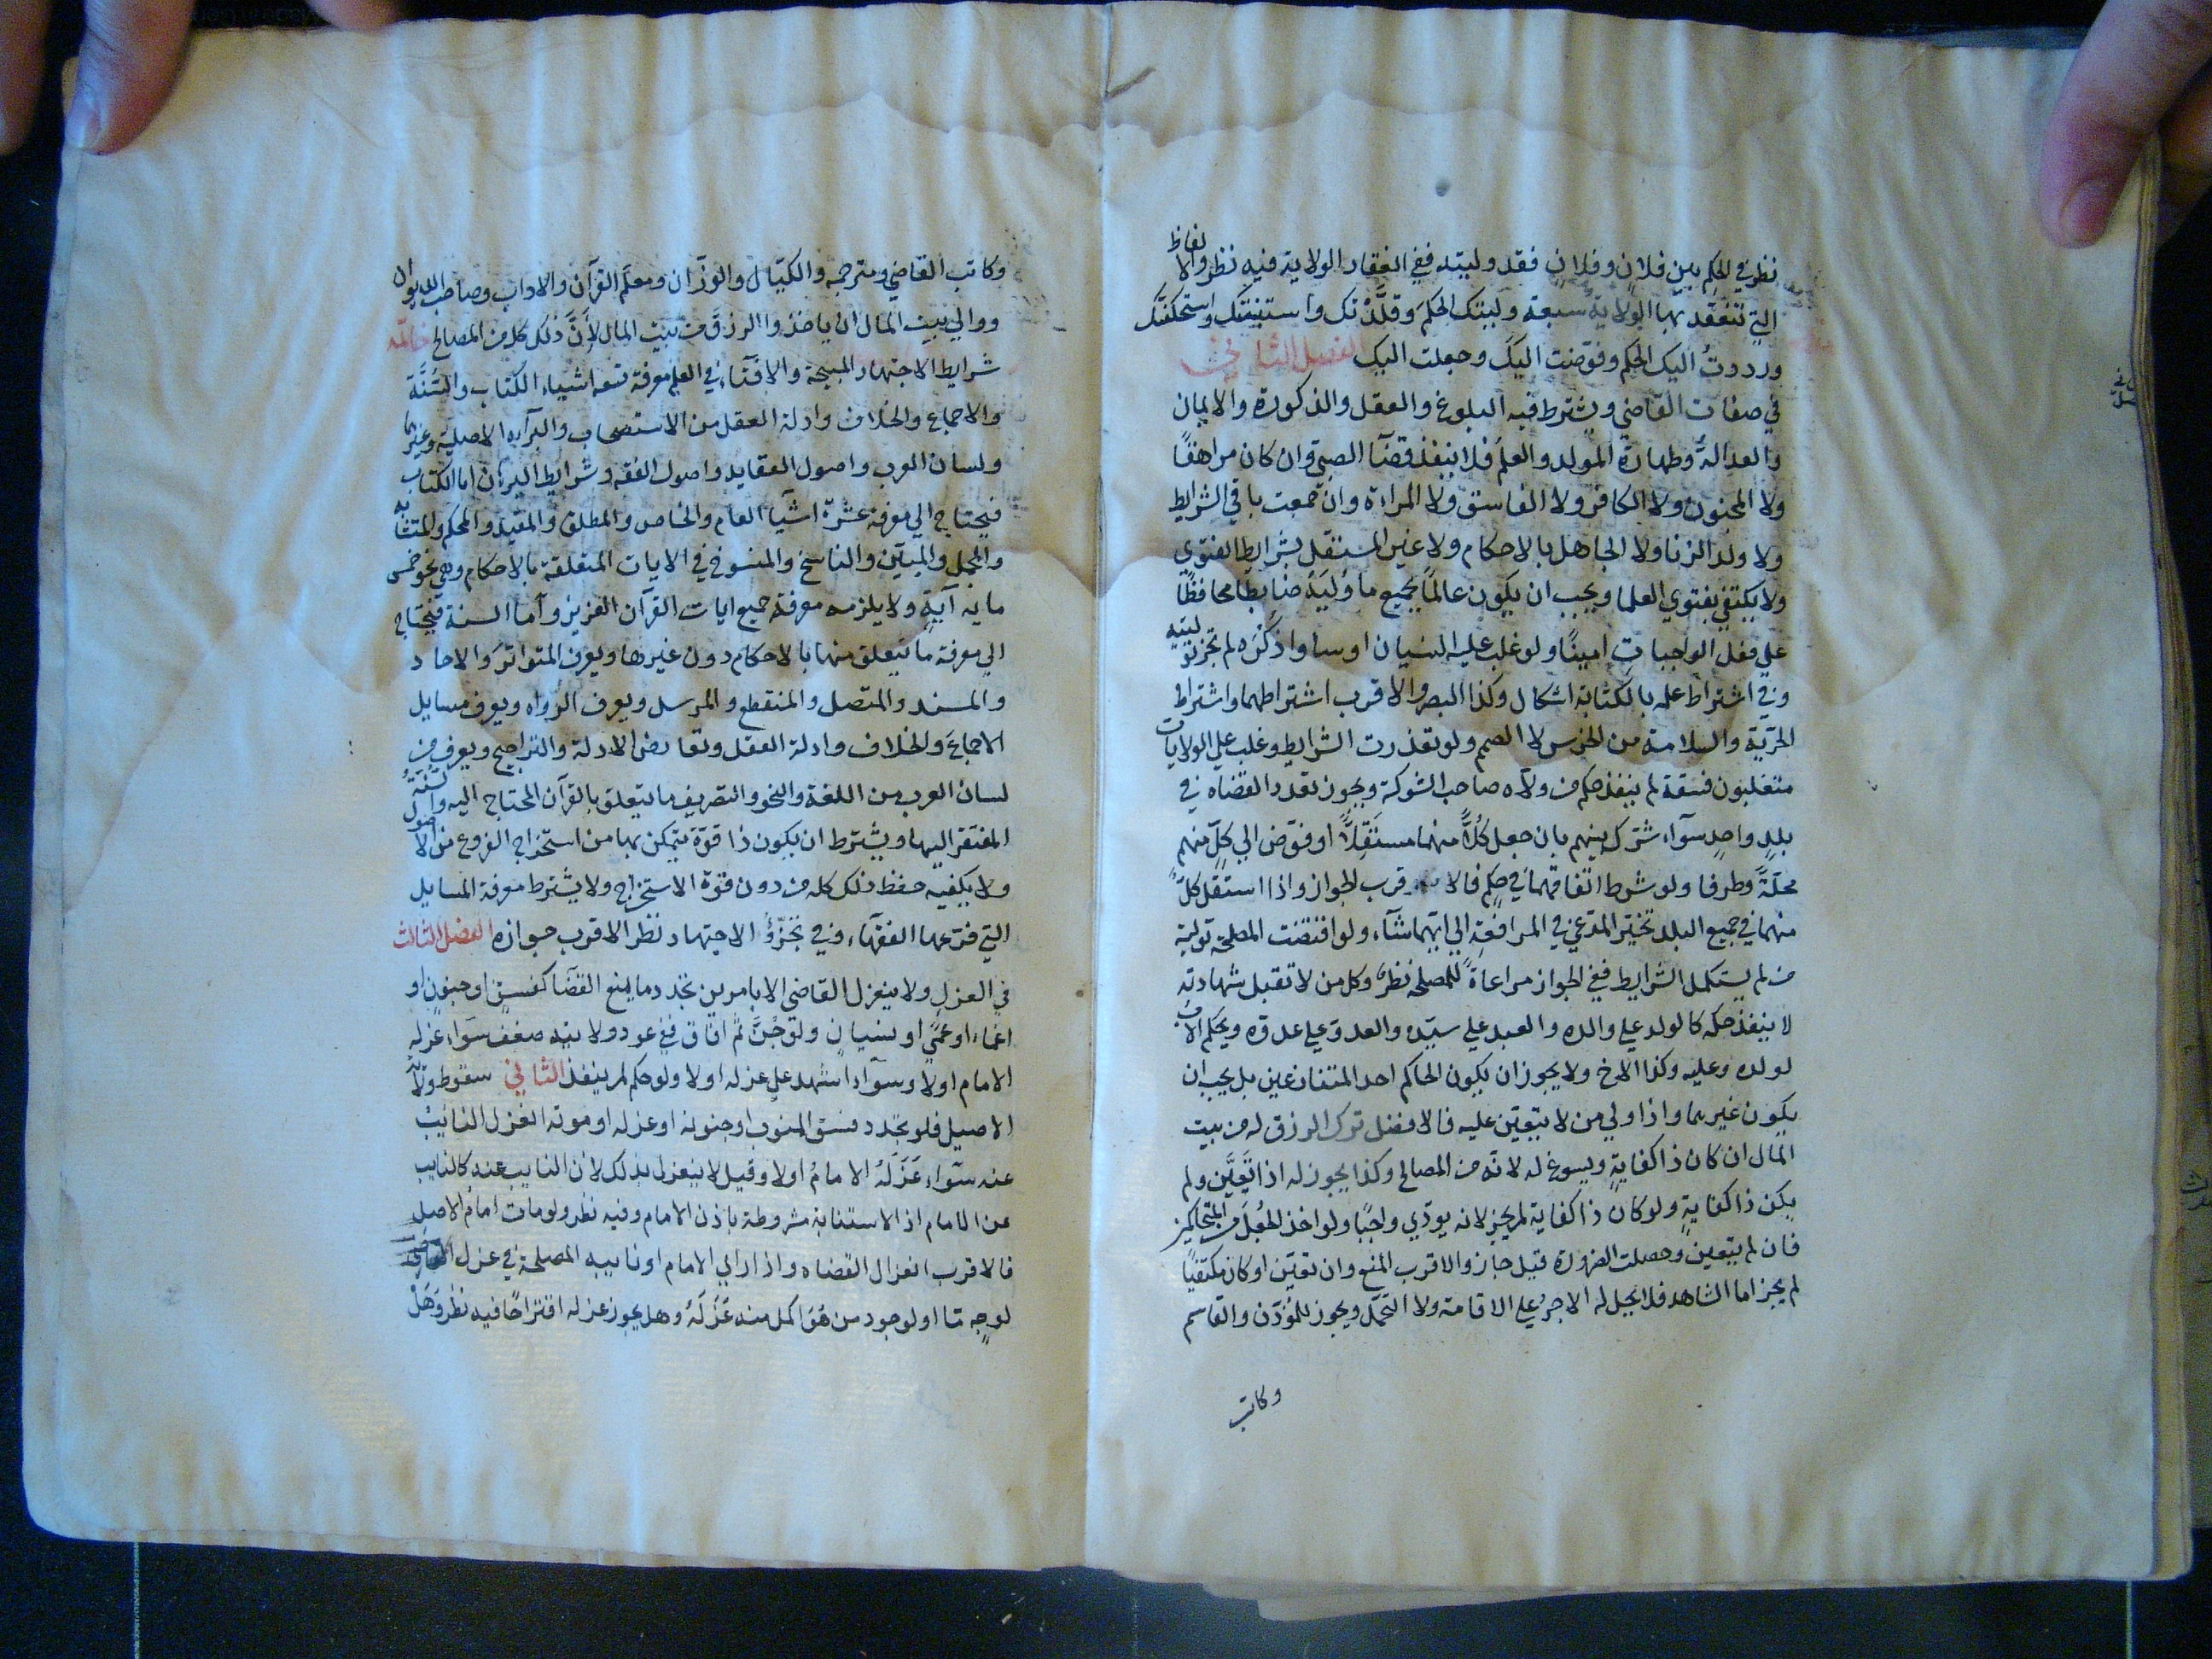 نظر في الحكم بين فلان وفلان فقد وليته ففي انعقاد الولاية فيه نظر والالفاظ
التي تنعقد بها الولاية سبعة وليتك الحكم وقلدتك واستنبتك واستخلفتك
ورددت اليك الحكم وفوضت اليك وجعلت اليك الفصل الثاني
في صفات القاضي ويشترط فيه البلوغ والعقل والذكورة والايمان
والعدالة وطهارة المولد والعلم فلا ينفذ قضآ الصبي وان كان مراهقًا
ولا المجنون ولا الكافر ولا الفاسق ولا المراة وان جمعت باقي الشرايط
ولا ولد الزنا ولا الجاهل بالاحكام ولا غير المستقل بشرايط الفتوي
ولا يكتفي بفتوي العلما ويجب ان يكون عالمًا بجميع ما وُلِيَهُ ضابطًا محافظًا
علي فعل الواجبات امينًا ولو غلب عليه النسيان او ساوا ذكره لم تجز توليته
وفي اشتراط علمه بالكتابة اشكال وكذا البصر والاقرب اشتراطهما واشتراط
الحرّية والسلامة من الخرس لا الصمم ولو تعذرت الشرايط وغلب علي الولايات
متغلبون فسقة لم ينفذ حكم من ولاه صاحب الشوكة ويجوز تعدد القضاه في
بلدٍ واحدٍ سوآء شرّك بينهم بان جعل كُلاًّ منهما مستقِلاًّ او فوّض الي كلٍّ منهم
محلّةً وطرفا ولو شرط اتفاقهما في حكم فالاقرب الجواز واذا استقل كلٌّ
منهما في جميع البلد تخيّر المدّعي في المرافعة الي ايّهما شآء ولو اقتضت المصلحة تولية
من لم يستكمل الشرايط ففي الجواز مراعاةً للمصلحة نظرٌ وكل من لا تقبل شهادته
لا ينفذ حكمه كالولد علي والده والعبد علي سيّده والعدوّ علي عدوّه ويحكم الاب
لولده وعليه وكذا الاخ ولا يجوز ان يكون الحاكم احد المتنازعين بل يجب ان
يكون غيرهما واذا ولي من لا يتعيّن عليه فالافضل ترك الرزق له من بيت
المال ان كان ذا كفايةٍ ويسوغ له لانّه من المصالح وكذا يجوز له اذا تعيّن ولم
يكن ذا كفايةٍ ولو كان ذا كفاية لم يجز لانه يودّي واجبًا ولو اخذ الجُعل من المتحاكمين
فان لم يتعين وحصلت الضرورة قيل جاز والاقرب المنع وان تعيّن او كان مكتفيًا
لم يجز اما الشاهد فلا يحل له الاجر علي الاقامة ولا التحمّل ويجوز للمؤذن والقاسم
وكاتب
وكاتب القاضي ومترجمه والكيّال والوزّان ومعلم القرآن والاداب وصاحب الديوان
ووالي بيت المال ان ياخذوا الرزق من بيت المال لانَّ ذلك كله من المصالح خاتمه
شرايط الاجتهاد المبيحة والافتآء في العلم معرفة تسعه اشياء الكتاب والسُّنَّة
والاجماع والخلاف وادلة العقل من الاستصحاب والبرآءة الاصلية وغيرهما
ولسان العرب واصول العقايد واصول الفقه وشرايط البرهان اما الكتاب
فيحتاج الي معرفة عشرة اشيآ العام والخاص والمطلق والمقيد والمحكم والمتشابه
والمجمل والمبيّن والناسخ والمنسوخ في الايات المتعلقة بالاحكام وهي نحو خمس
مايه آيةٍ ولا يلزمه معرفة جميع ايات القرآن العزيز وآما السنة فيحتاج
الي معرفة ما يتعلق منها بالاحكام دون غيرها ويعرف المتواتر والاحاد
والمسند والمتصل والمنقطع والمرسل ويعرف الرواه ويعرف مسايل
الاجماع والخلاف وادلة العقل وتعارض الادلة والتراجيح ويعرف من
لسان العرب من اللغة والنحو والتصريف ما يتعلق بالقرآن المحتاج اليه والسُّنَّةِ
المفتقر اليها ويشترط ان يكون ذا قوّة يتمكن بها من استخراج الفروع من الاصول
ولا يكفيه حفظ ذلك كله من دون قوّة الاستخراج ولا يشترط معرفة المسايل
التي فرّعها الفقهآء وفي تجزّؤُ الاجتهاد نظر الاقرب جوازه الفصل الثالث
في العزل ولا ينعزل القاضي الا بامرين تجدد ما يمنع القضآ كفسقٍ او جنونٍ او
اغمآء او عمًي او نسيان ولو جُنَّ ثم افاق ففي عود ولايته ضعف سوآء عزله
الامام اولا وسوآء اشهد علي عزله اولا ولو حكم لم ينفذ الثاني سقوط ولاية
الاصيل فلو تجدد فسق المنوب او جنونه او عزله او موته انعزل النايب
عنه سوآء عَزَلَهُ الامامُ اولا وقيل لا ينعزل بذلك لان النايب عنه كالنايب
عن الامام اذ الاستنابة مشروطة باذن الامام وفيه نظر ولو مات امام الاصل
فالاقرب انعزال القضاه واذا راي الامام او نايبه المصلحة في عزل القاضي
لوجهٍ مّا او لوجود من هُوَ اكمل منه عَزَلَهُ وهل يجوز عزله اقتراحًا فيه نظر وَهَلْ